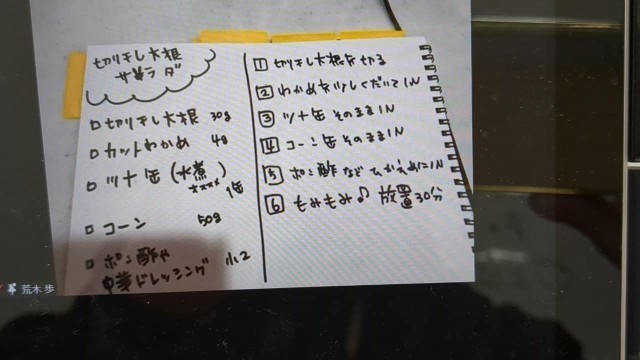 切り干し大根
サラダ
切り干し大根 30g
カットわかめ 4g
ツナ缶(水煮)
1缶
コーン 50g
ポン酢や
中華ドレッシング 小2
1 切り干し大根を切る
2 わかめを少しくだいてIN
3 ツナ缶そのままIN
4 コーン缶そのままIN
5 ポン酢などひかえめにIN
6 もみもみ♪ 放置30分
荒木 歩